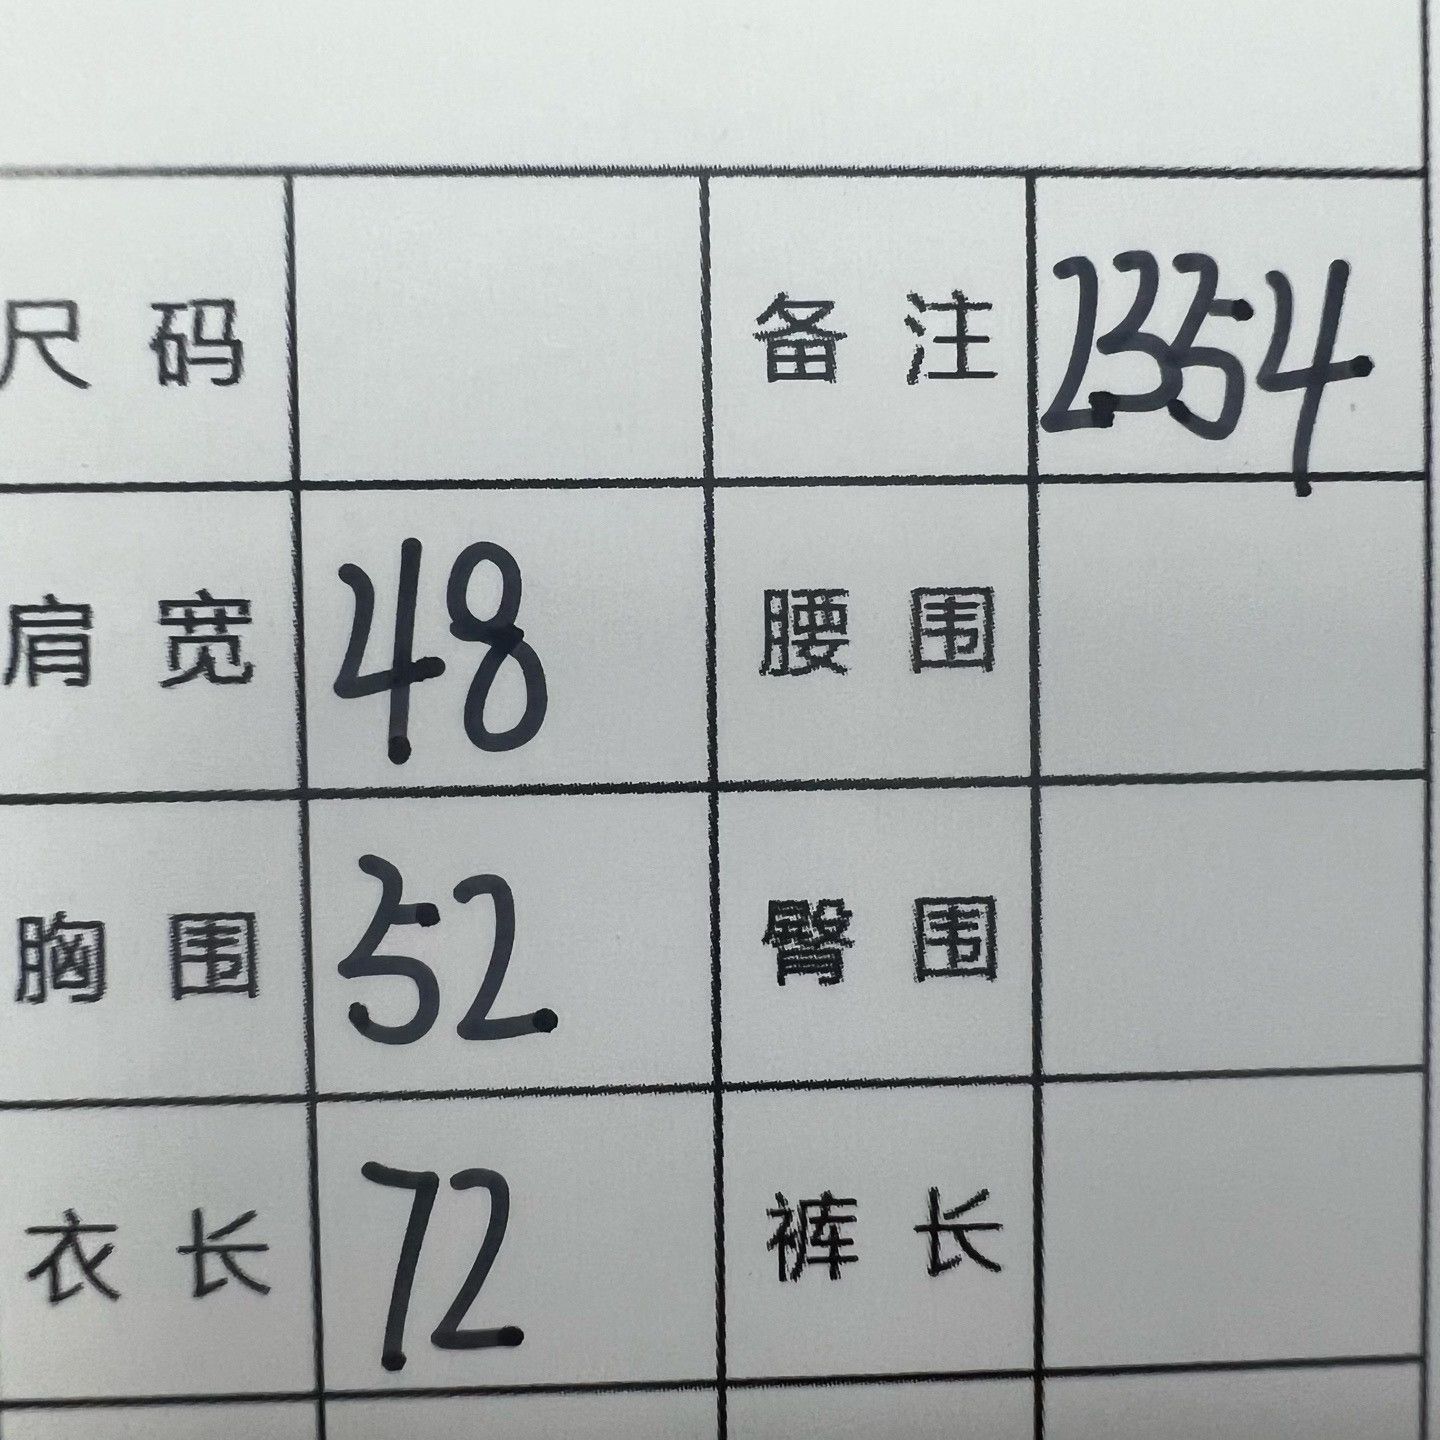 尺码 备注 2354
肩宽 48 腰围
胸围 52 臀围
衣长 72 裤长